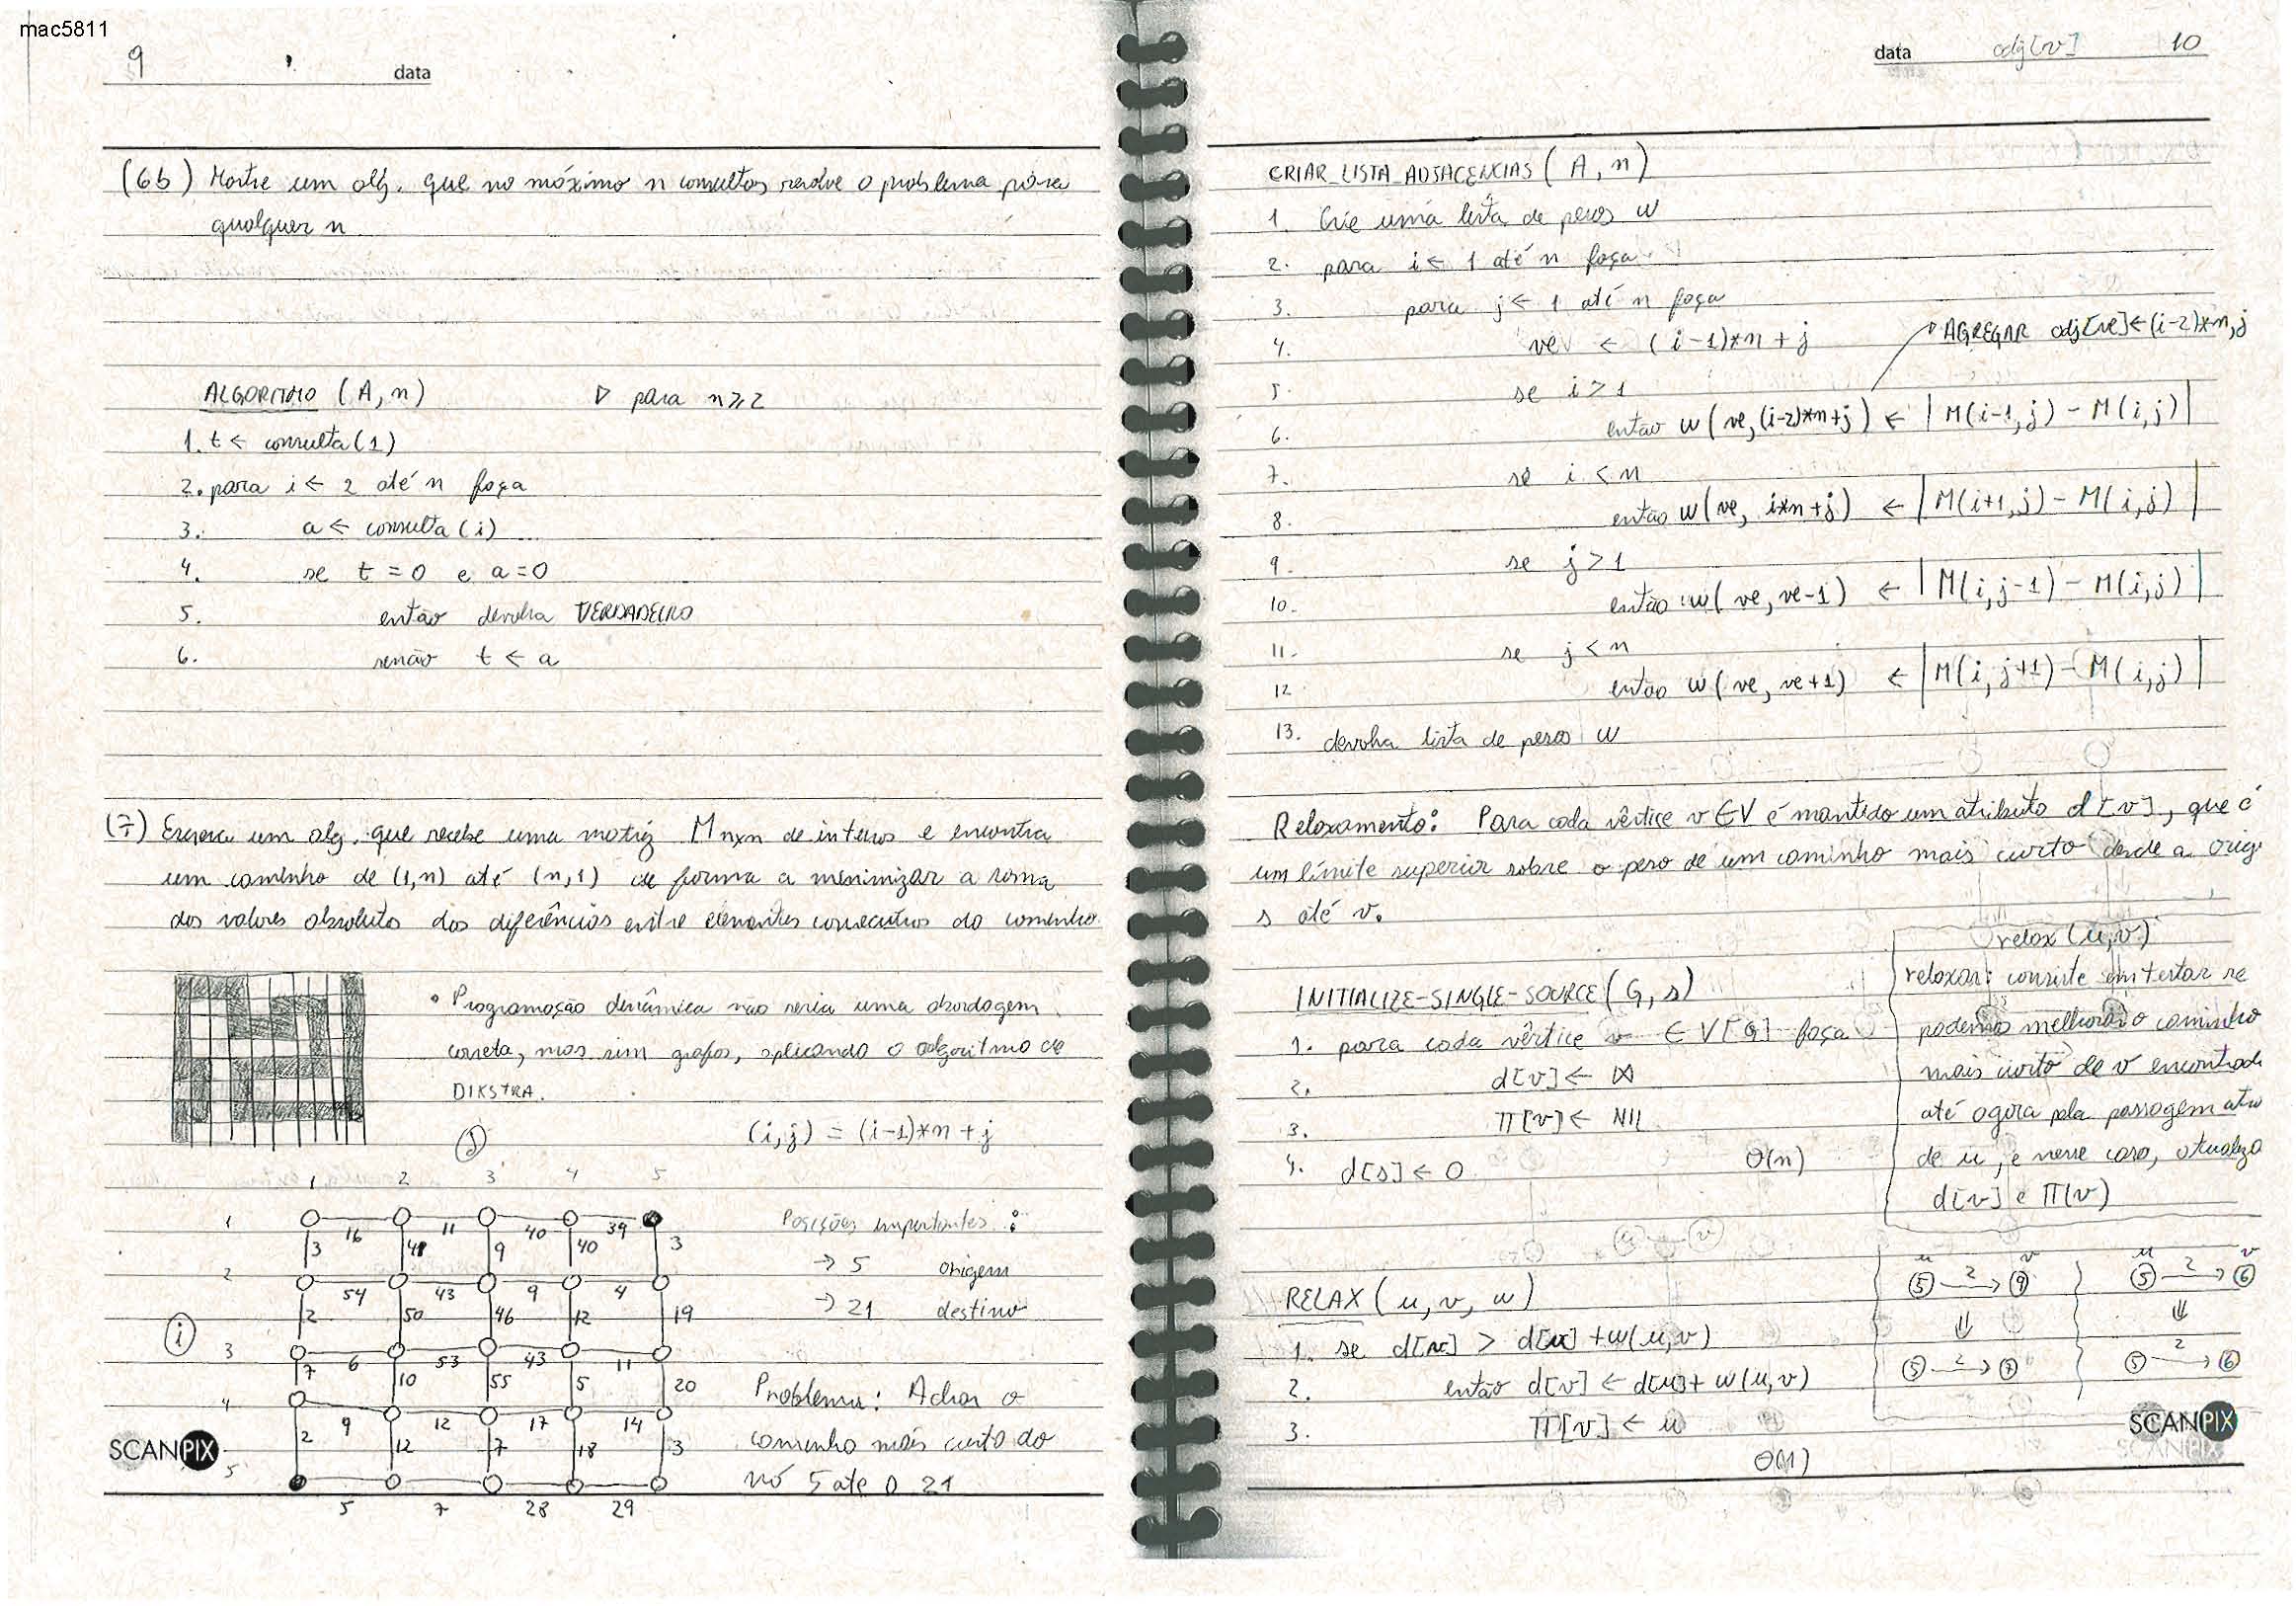 mac5811
9
data
(6b) Mostre um alg. que no máximo n consultas resolve o problema para
qualquer n
ALGORITMO (A, n) ▷ para n ≥ 2
1. t ← consulta(1)
2. para i ← 2 até n faça
3. a ← consulta(i)
4. se t = 0 e a = 0
5. então devolva VERDADEIRO
6. senão t ← a
(7) Escreva um alg. que recebe uma matriz M nxn de inteiros e encontra
um caminho de (1,n) até (n,1) de forma a minimizar a soma
dos valores absolutos das diferências entre elementos consecutivos do caminho
• Programação dinâmica não seria uma abordagem
correta, mas sim grafos, aplicando o algoritmo de
DIKSTRA.
j
(i,j) = (i-1)*n + j
1 2 3 4 5
1
16 11 40 39
3 48 9 40 3
Posições importantes :
2
54 43 9 4
→ 5 origem
2 50 46 12 19
→ 21 destino
i
3
6 53 43 11
7 10 55 5 20
Problema: Achar o
4
9 12 17 14
2 12 7 18 3
caminho mais curto do
5
nó 5 ate o 21
5 7 28 29
SCANPIX
data adj[v] 10
CRIAR_LISTA_ADJACENCIAS (A, n)
1. Crie uma lista de pesos w
2. para i ← 1 até n faça
3. para j ← 1 até n faça
4. ve ← (i-1)*n + j
AGREGAR adj[ve]←(i-2)*n,j
5. se i > 1
6. então w(ve, (i-2)*n+j) ← |M(i-1,j) - M(i,j)|
7. se i < n
8. então w(ve, i*n+j) ← |M(i+1,j) - M(i,j)|
9. se j > 1
10. então w(ve, ve-1) ← |M(i,j-1) - M(i,j)|
11. se j < n
12 então w(ve, ve+1) ← |M(i,j+1) - M(i,j)|
13. devolva lista de pesos w
Relaxamento: Para cada vértice v ∈ V é mantido um atributo d[v], que é
um límite superior sobre o peso de um caminho mais curto desde a orig
s até v.
relax (u,v)
relaxar: consiste em testar se
podemos melhorar o caminho
mais curto de v encontrad
até agora pela passagem atr
de u, e nesse caso, atualiza
d[v] e π(v)
INITIALIZE-SINGLE-SOURCE (G, s)
1. para cada vértice v ∈ V[G] faça
2. d[v] ← ∞
3. π[v] ← NIL
4. d[s] ← 0 Θ(n)
RELAX (u, v, w)
1. se d[v] > d[u] + w(u,v)
2. então d[v] ← d[u] + w(u,v)
3. π[v] ← u
Θ(1)
u v u v
5 2 9 5 2 6
⇓ ⇓
5 2 7 5 2 6
SCANPIX